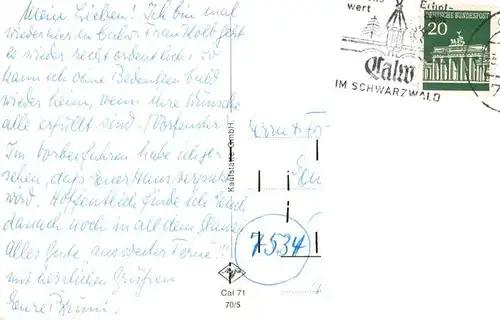 Meine Lieben! Ich bin mal
wieder hier in Calw. Frau Kolb geht
es wieder recht ordentlich. So
kann ich ohne Bedenken bald
wieder heim, wenn Ihre Wünsche
alle erfüllt sind. (Vorfenster
Im Vorbeifahren habe ich ge-
sehen, daß Euer Haus verputzt
wird. Hoffentlich finde ich Euch
danach noch in all dem Glanze
Alles Gute "aus weiter Ferne"!!
mit herzlichen Grüßen
Eure Bruni.
Kaufstätte GmbH.
Cal 71
70/5
wert
Erhol-
Calw
IM SCHWARZWALD
DEUTSCHE BUNDESPOST
20
7534